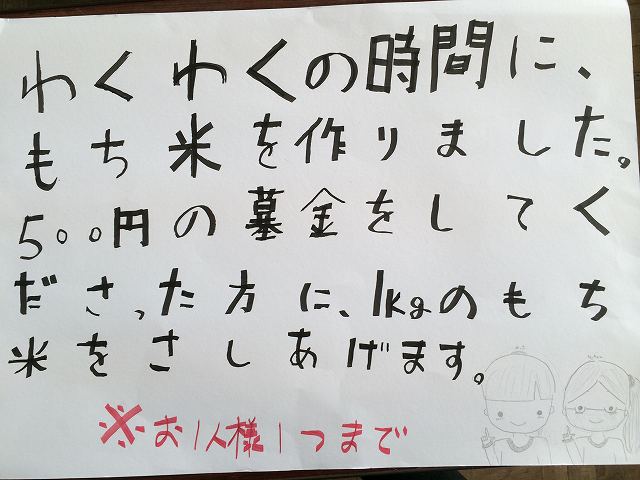 わくわくの時間に、
もち米を作りました。
500円の墓金をしてく
ださった方に、1kgのもち
米をさしあげます。
※お1人様1つまで